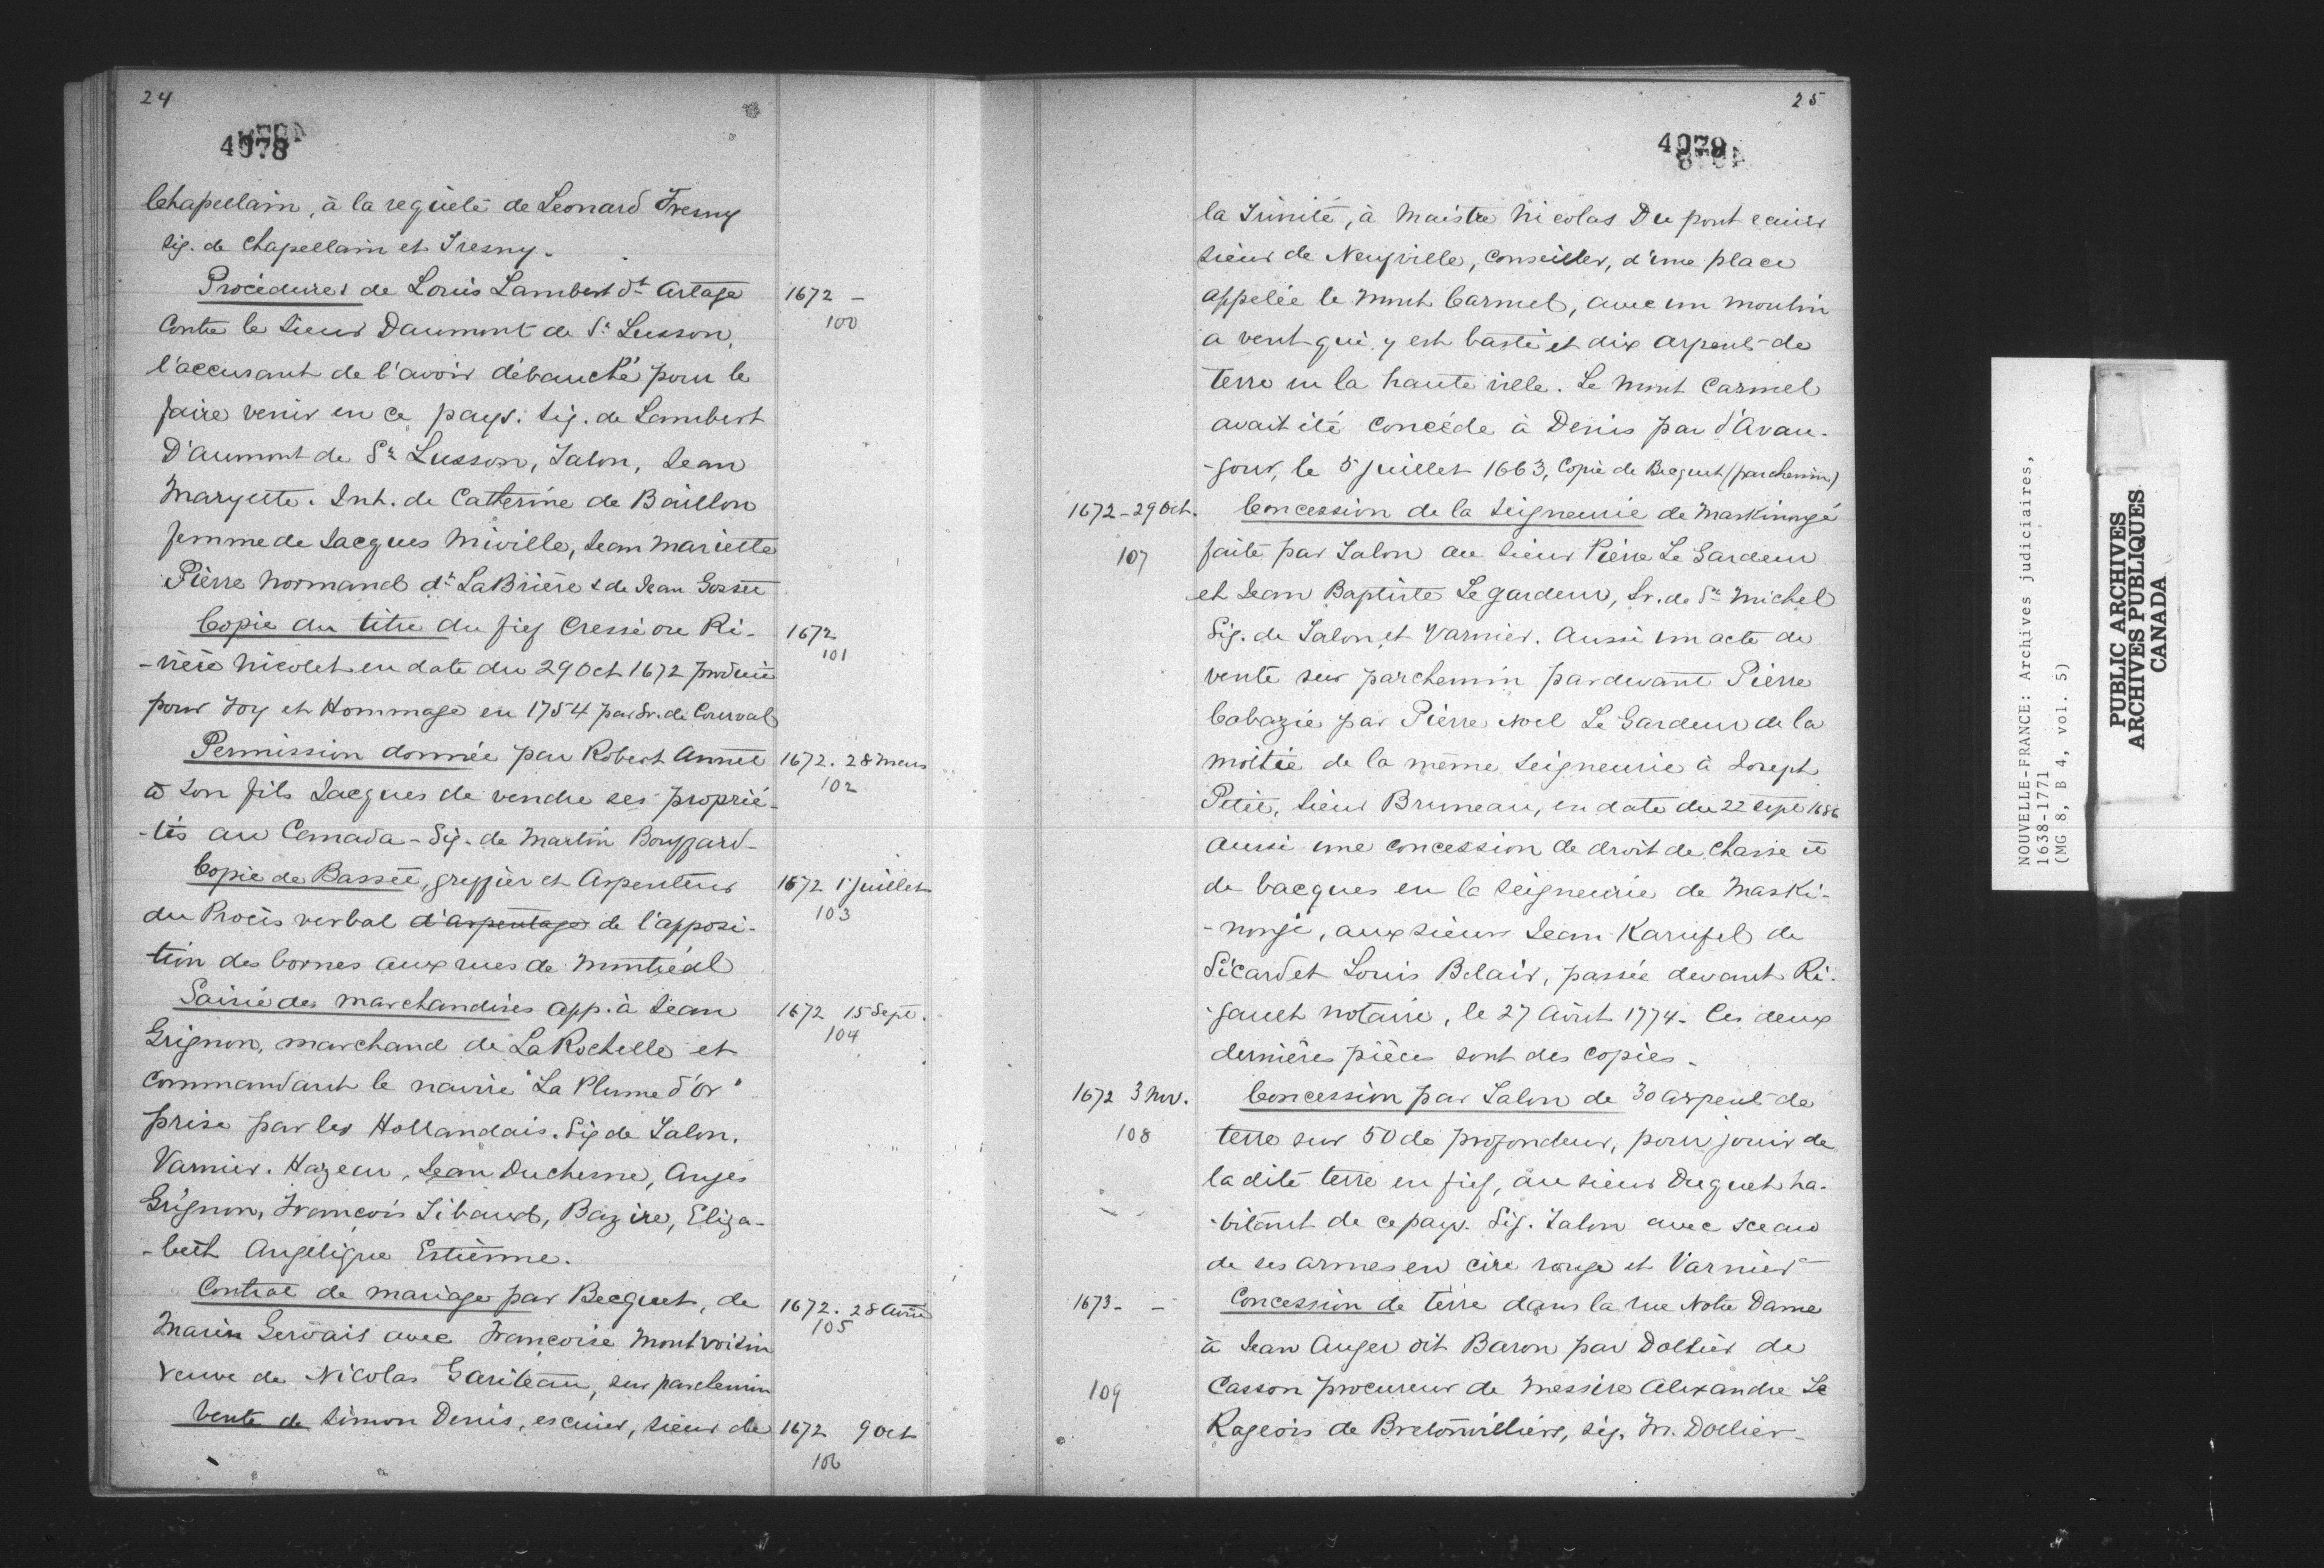 24
4078
Chapellain, à la requête de Leonard Tresny
sig. de Chapellain et Tresny.
Procédures de Louis Lambert dt Artage
1672 -
100
Contre le Sieur Daumont de St Lusson,
l'accusant de l'avoir débauché pour le
faire venir en ce pays. Sig. de Lambert
D'aumont de St Lusson, Talon, Jean
Maryette. Int. de Catherine de Baillon
femme de Jacques Miville, Jean Mariette
Pierre Normand dt LaBrière & de Jean Gosset
Copie du titre du fief Cressé ou Ri-
1672
101
-vière Nicolet en date du 29 Oct 1672 produit
pour Foy et Hommage en 1754 par Sr. de Courval
Permission donnée par Robert Annet
1672. 28 Mars
102
à son fils Jacques de vendre ses proprié-
-tés au Canada - Sig. de Martin Bouzzard -
Copie de Basset, greffier et Arpenteur
1672 1 Juillet
103
du Procès verbal d'arpentage de l'apposi-
tion des bornes aux rues de Montréal
Saisie des marchandises app. à Jean
1672 15 Sept.
104
Grignon, marchand de La Rochelle et
Commandant le navire "La Plume d'or"
prise par les Hollandais. Sig de Talon.
Varnier. Hazeur, Jean Duchesne, Angés
Grignon, François Tibaud, Bazire, Eliza-
-beth Angélique Estienne.
Contrat de mariage par Becquet, de
1672. 28 Avril
105
Marin Gervais avec Françoise Montvoisin
veuve de Nicolas Gariteau, sur parchemin
Vente de Simon Denis, escuier, sieur de
1672 9 Oct
106
25
4079
la Trinité, à Maistre Nicolas Du pont ecuier
sieur de Neuville, Conseiller, d'une place
appelée le Mont Carmel, avec un moulin
a vent qui y est basti et dix arpents de
terre en la haute ville. Le Mont Carmel
avait été concédé à Denis par d'Avau-
-gour, le 5 juillet 1663, Copie de Becquet (parchemin)
1672 - 29 Oct.
Concession de la Seigneurie de Maskinongé
107
faite par Talon au sieur Pierre Le Gardeur
et Jean Baptiste Legardeur, Sr. de St Michel
Sig. de Talon et Varnier. Aussi un acte de
vente sur parchemin pardevant Pierre
Cabazié par Pierre Noel Le Gardeur de la
moitié de la même Seigneurie à Joseph
Petit, Sieur Bruneau, en date du 22 Sept 1686
Aussi une concession de droit de chasse et
de bacques en la Seigneurie de Maski-
-nongé, aux sieurs Jean Karufel de
Sicard et Louis Belair, passée devant Ri-
-gault notaire, le 27 Août 1774 - Ces deux
dernières pièces sont des copies -
1672 3 Nov.
Concession par Talon de 30 arpents de
108
terre sur 50 de profondeur, pour jouir de
la dite terre en fief, au sieur Duguet ha-
-bitant de ce pays. Sig. Talon avec sceau
de ses armes en cire rouge et Varnier
1673 - -
Concession de terre dans la rue Notre Dame
à Jean Auger dit Baron par Dollier de
109
Casson procureur de Messire Alexandre Le
Rageois de Bretonvilliers, sig. Fr. Dollier -
NOUVELLE-FRANCE: Archives judiciaires,
1638-1771
(MG 8, B 4, vol. 5)
PUBLIC ARCHIVES
ARCHIVES PUBLIQUES
CANADA